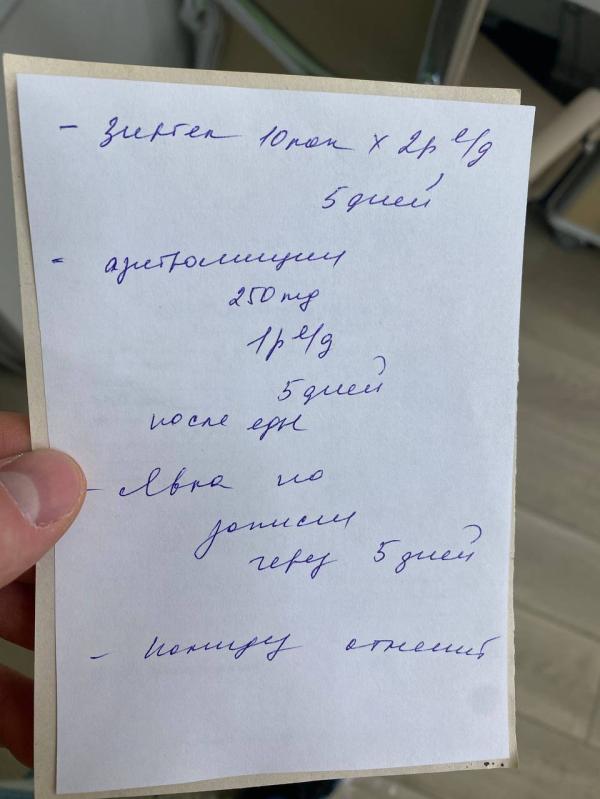 - Зиртек 10 кап х 2р е/д
5 дней
- азитромицин
250 mg
1р е/д
5 дней
после еды
- Явка по
записи
через 5 дней
- отменить